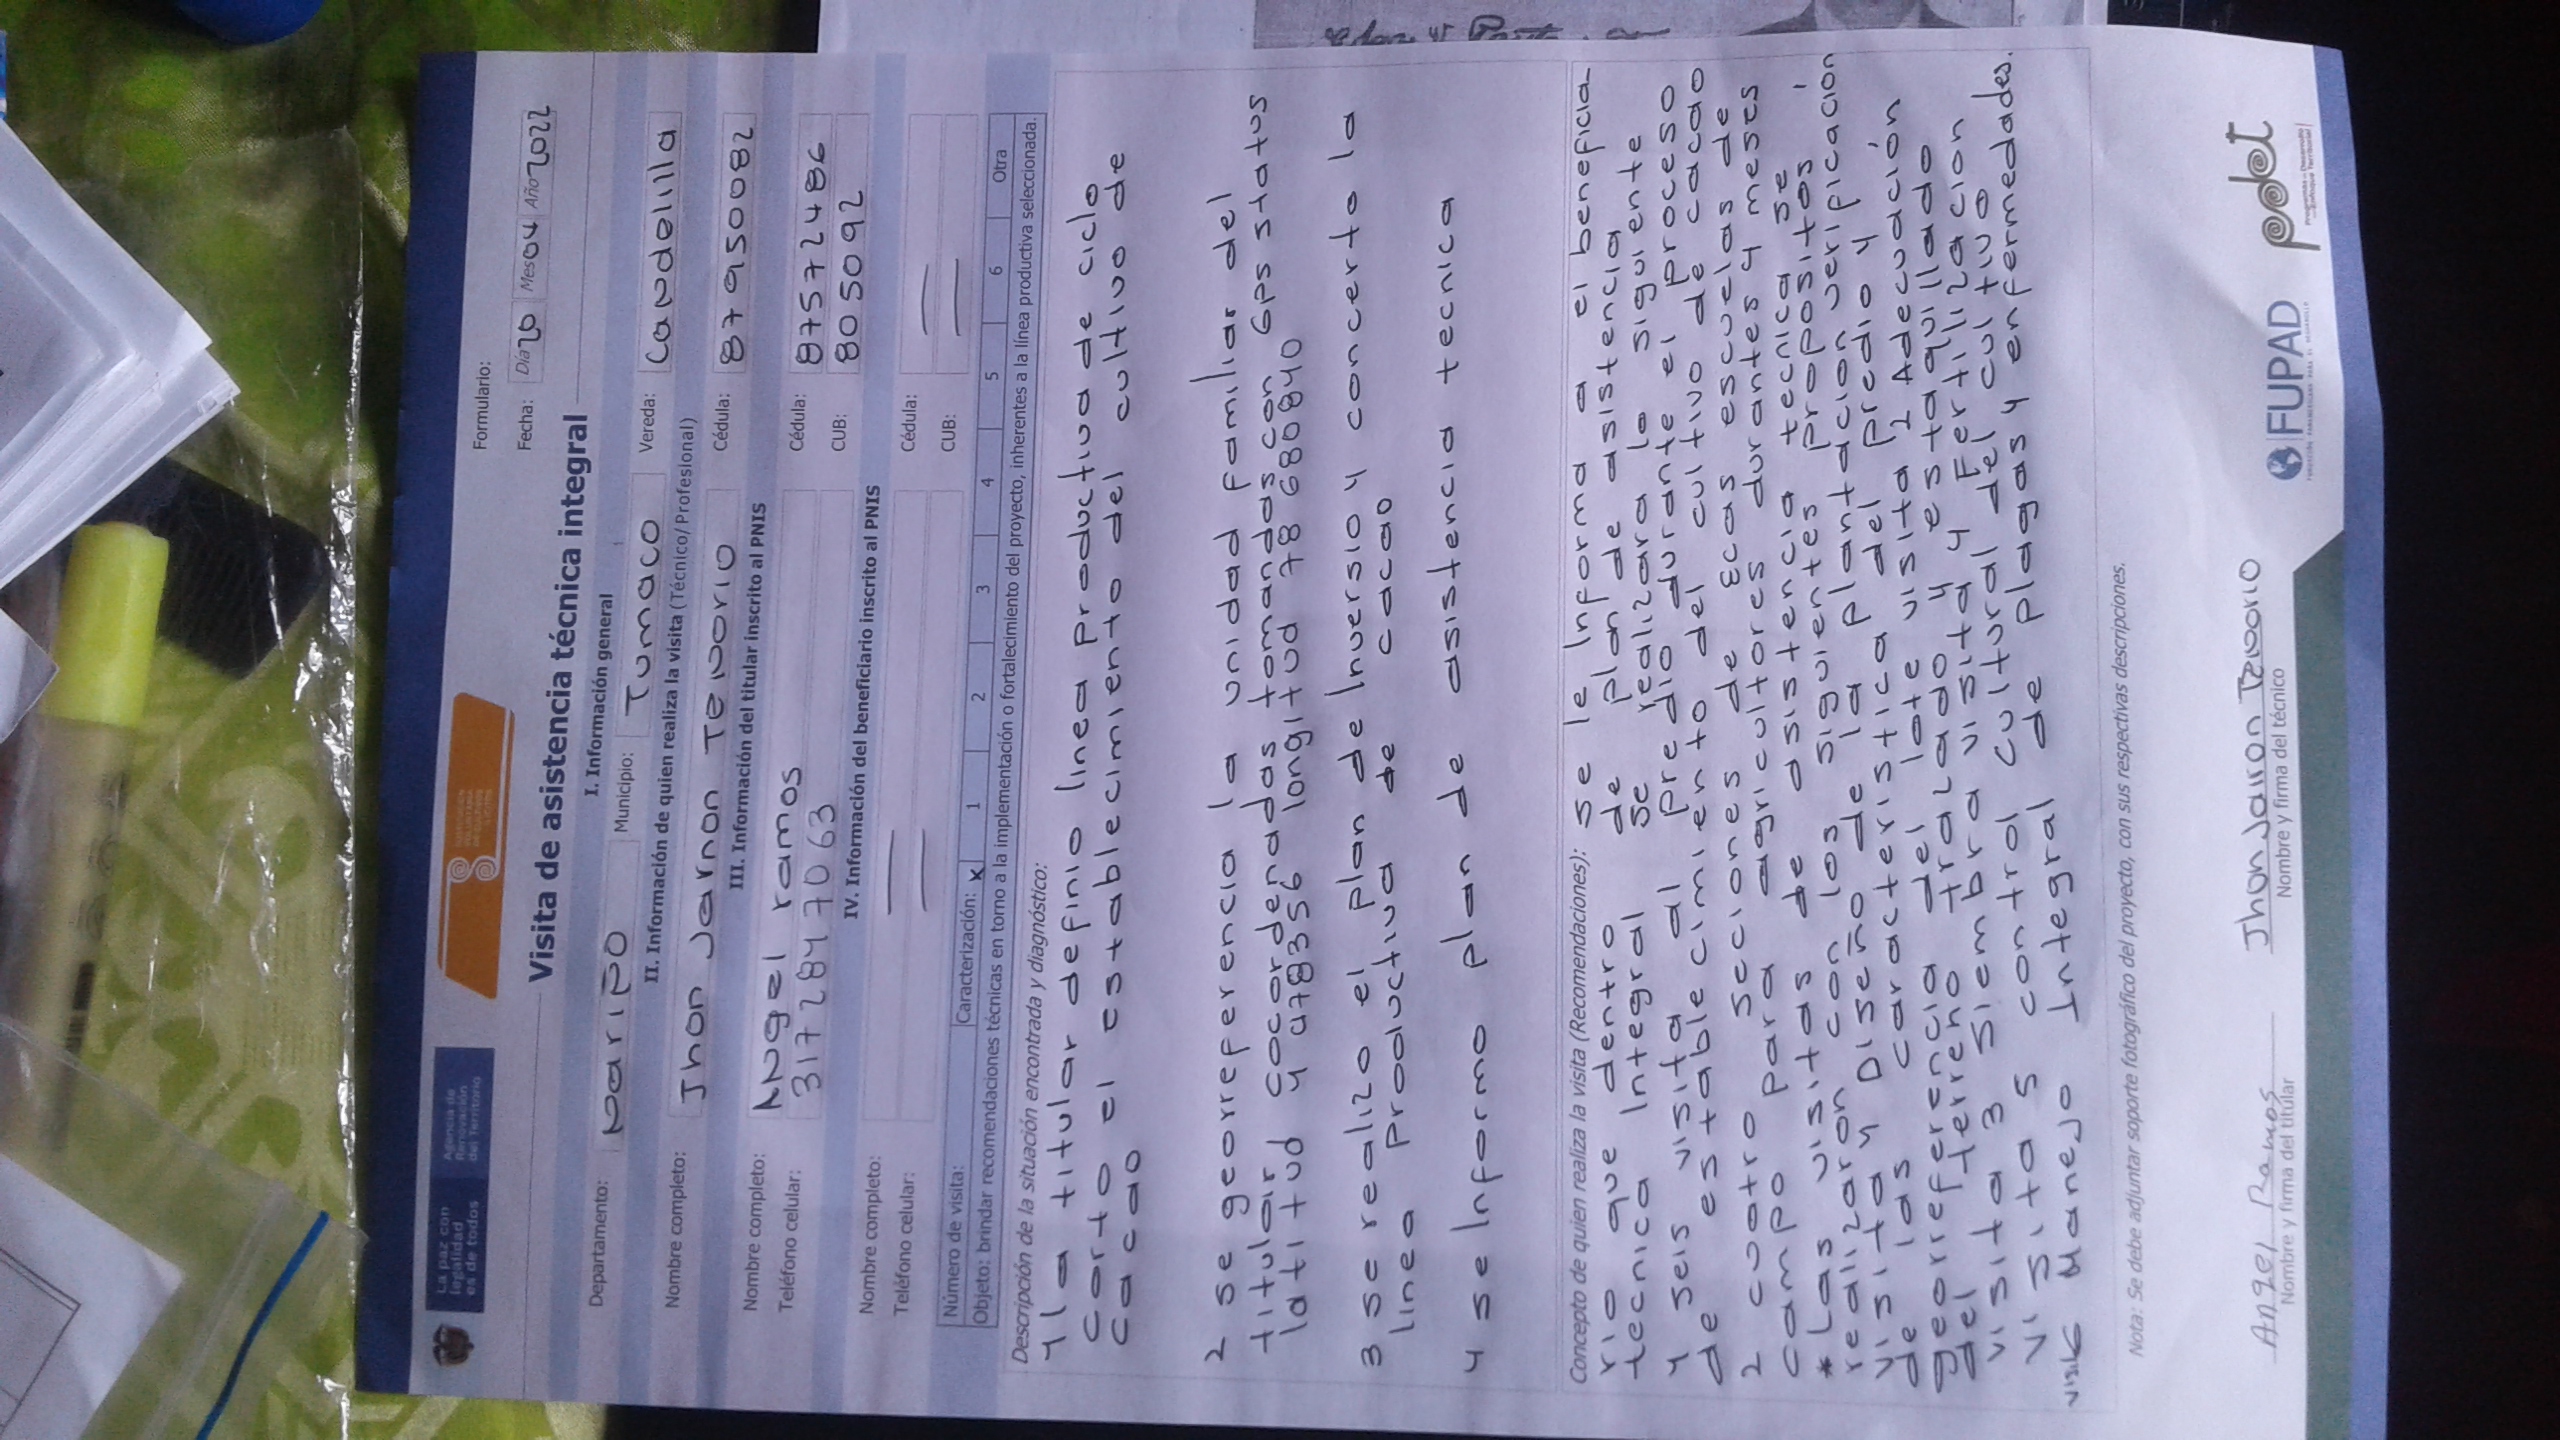 La paz con
legalidad
es de todos
Agencia de
Renovación
del Territorio
Formulario:
Fecha: Día 20 Mes 04 Año 2022
Visita de asistencia técnica integral
I. Información general
Departamento: Nariño Municipio: Tumaco Vereda: Candelilla
II. Información de quien realiza la visita (Técnico/Profesional)
Nombre completo: Jhon Jarnon Tenorio Cédula: 87950082
III. Información del titular inscrito al PNIS
Nombre completo: Angel ramos Cédula: 87572486
Teléfono celular: 3172847063 CUB: 805092
IV. Información del beneficiario inscrito al PNIS
Nombre completo: Cédula:
Teléfono celular: CUB:
Número de visita: Caracterización: x 1 2 3 4 5 6 Otra
Objeto: brindar recomendaciones técnicas en torno a la implementación o fortalecimiento del proyecto, inherentes a la línea productiva seleccionada.
Descripción de la situación encontrada y diagnóstico:
1 la titular definio linea productiva de ciclo
corto el establecimiento del cultivo de
cacao
2 se georreferencia la unidad familiar del
titular cocordenadas tomandas con Gps status
latitud 1478356 longitud 78 680840
3 se realizo el plan de Inversio y concerto la
linea productiva de cacao
4 se Informo plan de asistencia tecnica
Concepto de quien realiza la visita (Recomendaciones): se le Informa a el beneficia-
rio que dentro de plan de asistencia
tecnica Integral se realizara lo siguiente
1 seis visita al predio durante el proceso
de establecimiento del cultivo de cacao
2 cuatro secciones de Ecas escuelas de
campo para agricultores durantes 4 meses
* Las visitas de asistencia tecnica se
realizaron con los siguientes propositos
visita 1 Diseño de la plantacion verificacion
de las caracteristica del predio y
georreferencia del lote visita 2 Adecuación
del terreno trazado y estaquillado
visita 3 siembra visita 4 Fertilizacion
visita 5 control cultural del cultivo
visit6 Manejo Integral de plagas y enfermedades.
Nota: Se debe adjuntar soporte fotográfico del proyecto, con sus respectivas descripciones.
Angel Ramos Jhon Jairon Tenorio
Nombre y firma del titular Nombre y firma del técnico
FUPAD
pdet